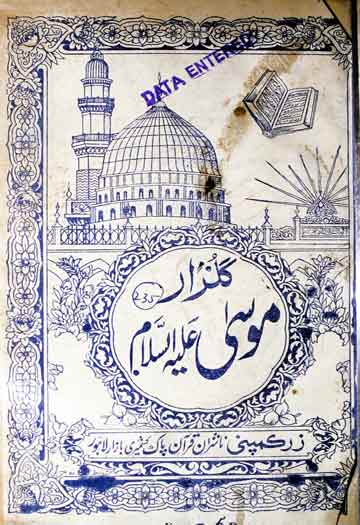 DATA ENTERED
گلزار
موسیٰ علیہ السلام
زر کمپنی ناشران قرآن پاک کشمیری بازار لاہور